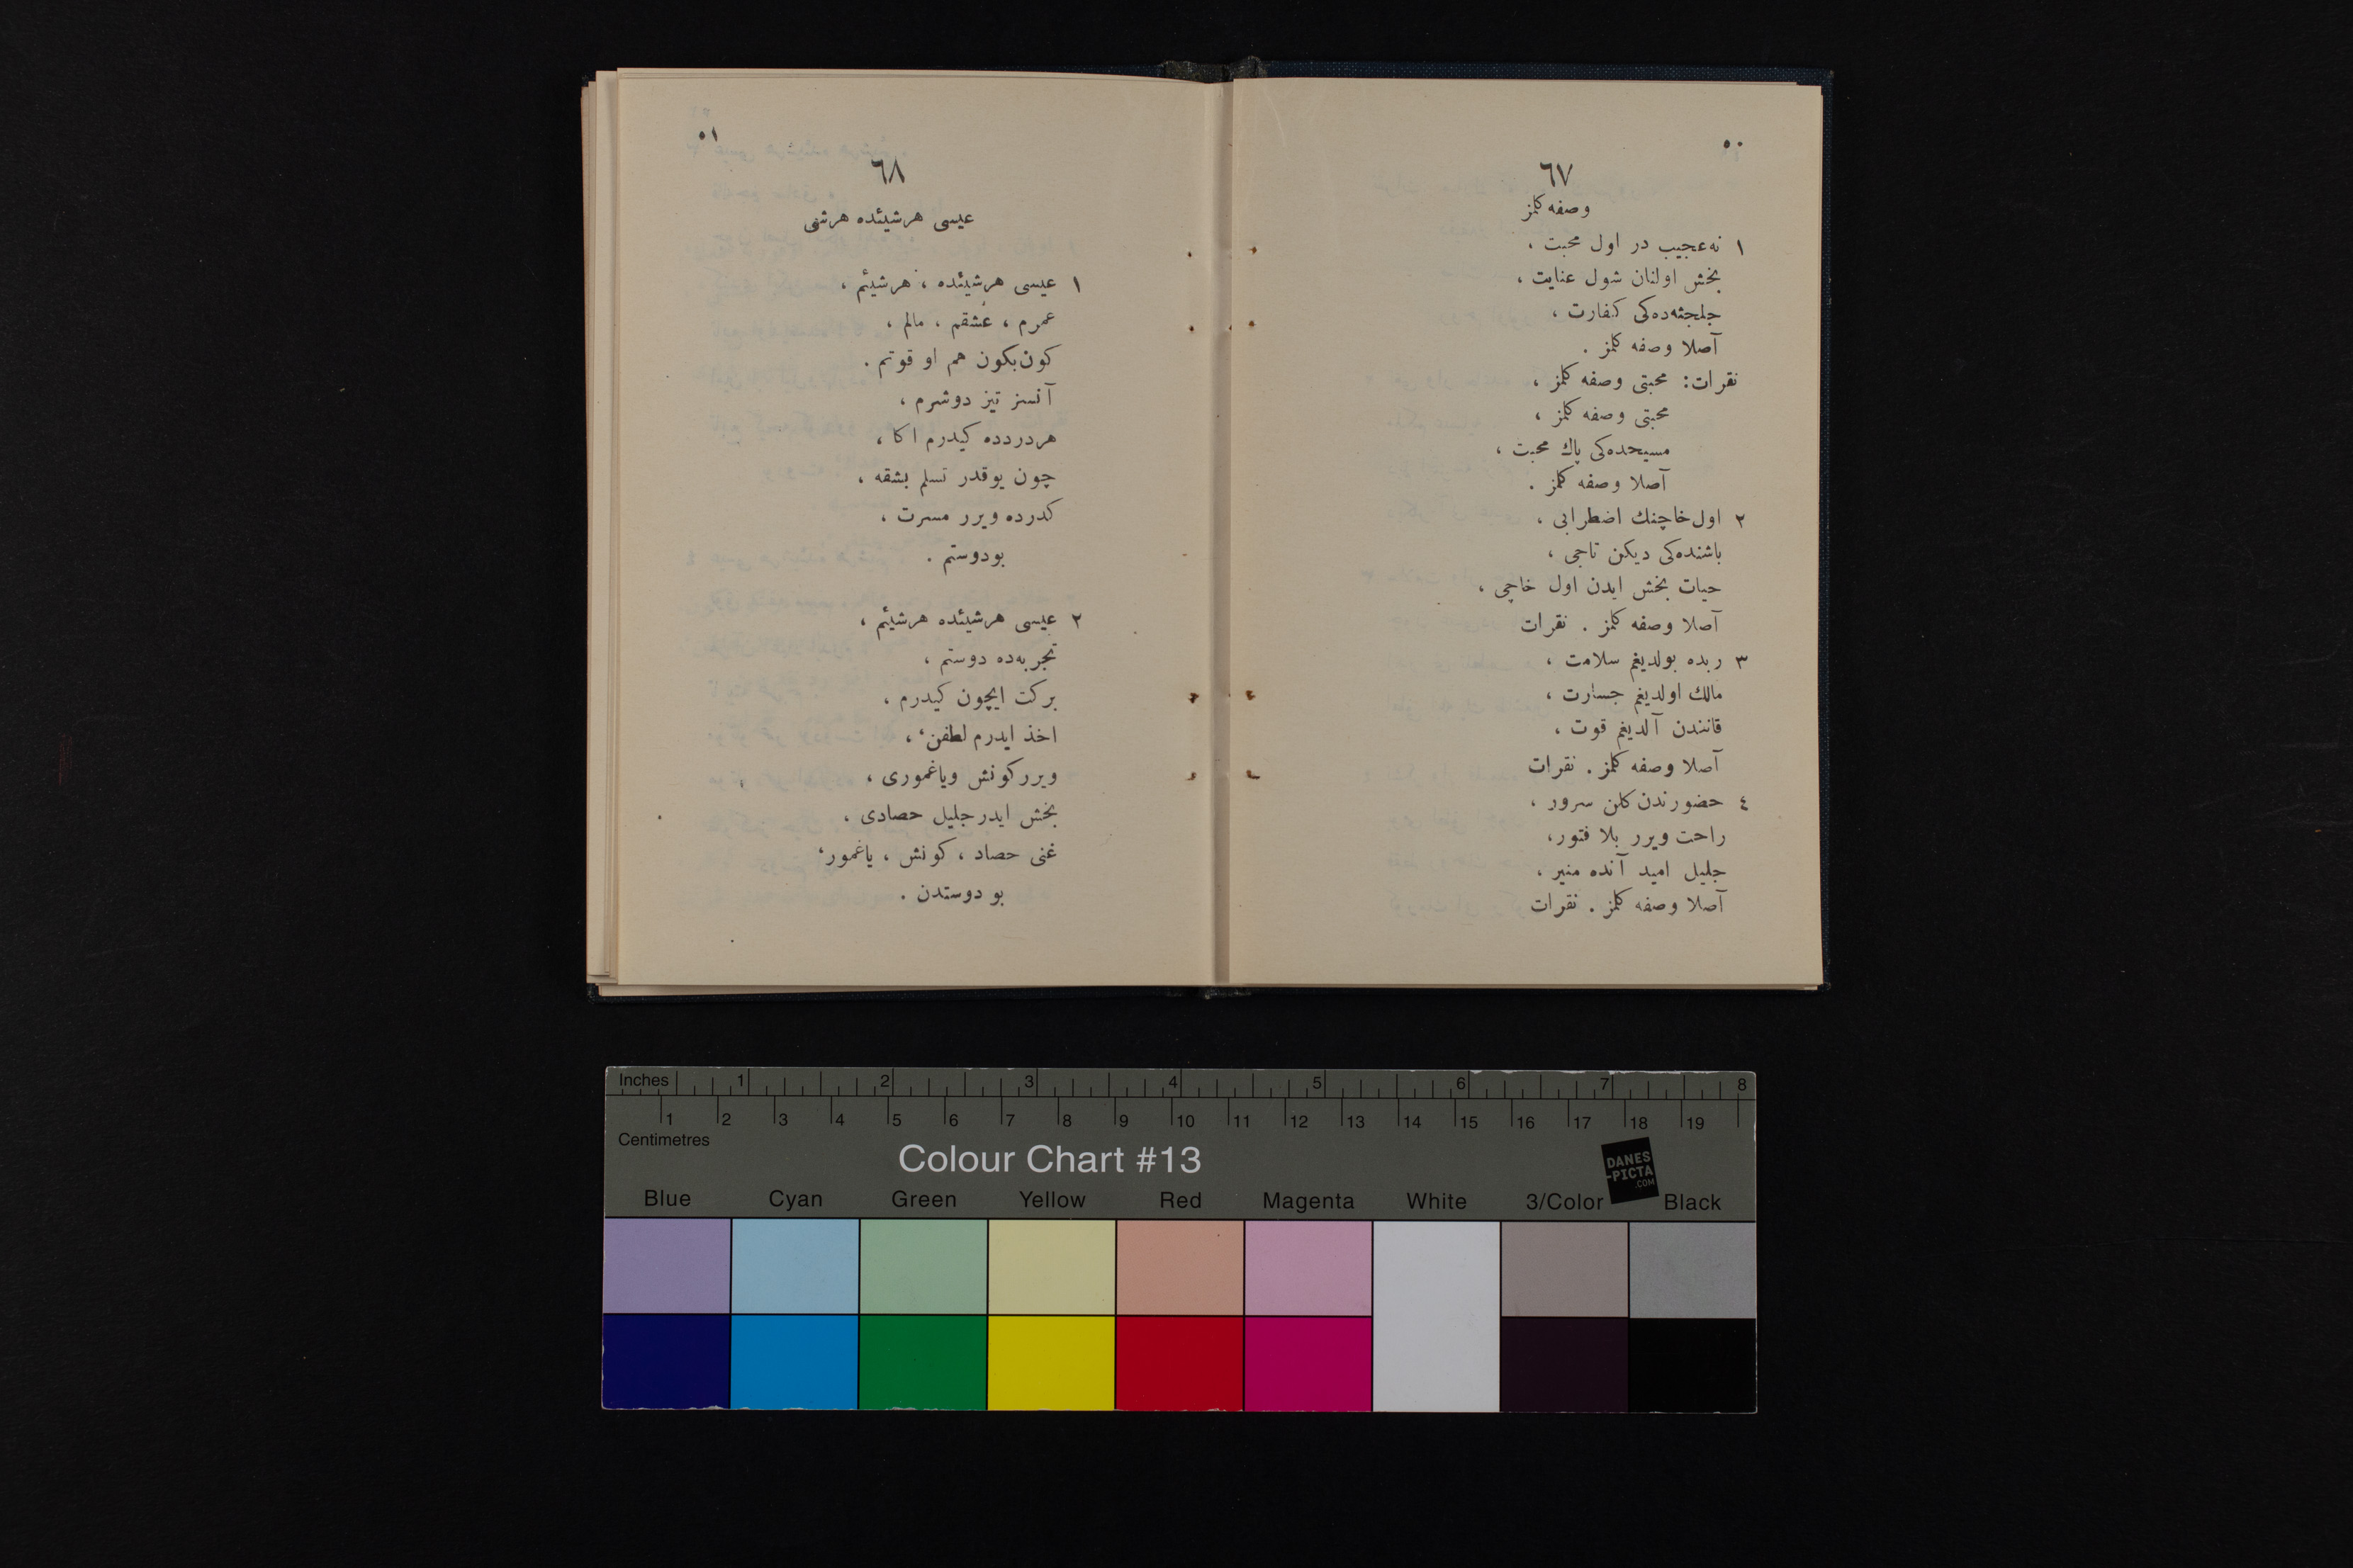 ٥٠
٦٧
وصفه كلمز
١ نه‌عجيب در اول محبت ،
بخش اولنان شول عنايت ،
جلجثه‌ده‌كى كفارت ،
آصلا وصفه كلمز .
نقرات: محبتى وصفه كلمز ،
محبتى وصفه كلمز ،
مسيحده‌كى پاك محبت ،
آصلا وصفه كلمز .
٢ اول خاچنك اضطرابى ،
باشنده‌كى ديكن تاجى ،
حيات بخش ايدن اول خاچى ،
آصلا وصفه كلمز . نقرات
٣ ربده بولديغم سلامت ،
مالك اولديغم جسارت ،
قانندن آلديغم قوت ،
آصلا وصفه كلمز . نقرات
٤ حضورندن كلن سرور ،
راحت ويرر بلا فتور،
جليل اميد آنده منير ،
آصلا وصفه كلمز . نقرات
٥١
٦٨
عيسى هرشيئده هرشى
١ عيسى هرشيئده ، هرشيئم ،
عمرم ، عشقم ، مالم ،
كون‌بكون هم او قوتم .
آنسز تيز دوشرم ،
هردردده كيدرم اكا ،
چون يوقدر تسلم بشقه ،
كدرده ويرر مسرت ،
بودوستم .
٢ عيسى هرشيئده هرشيئم ،
تجربه‌ده دوستم ،
بركت ايچون كيدرم ،
اخذ ايدرم لطفن ،
ويرر كونش وياغمورى ،
بخش ايدر جليل حصادى ،
غنى حصاد ، كونش ، ياغمور،
بو دوستدن .
Inches 1 2 3 4 5 6 7 8
1 2 3 4 5 6 7 8 9 10 11 12 13 14 15 16 17 18 19
Centimetres
Colour Chart #13
DANES
-PICTA
.COM
Blue Cyan Green Yellow Red Magenta White 3/Color Black